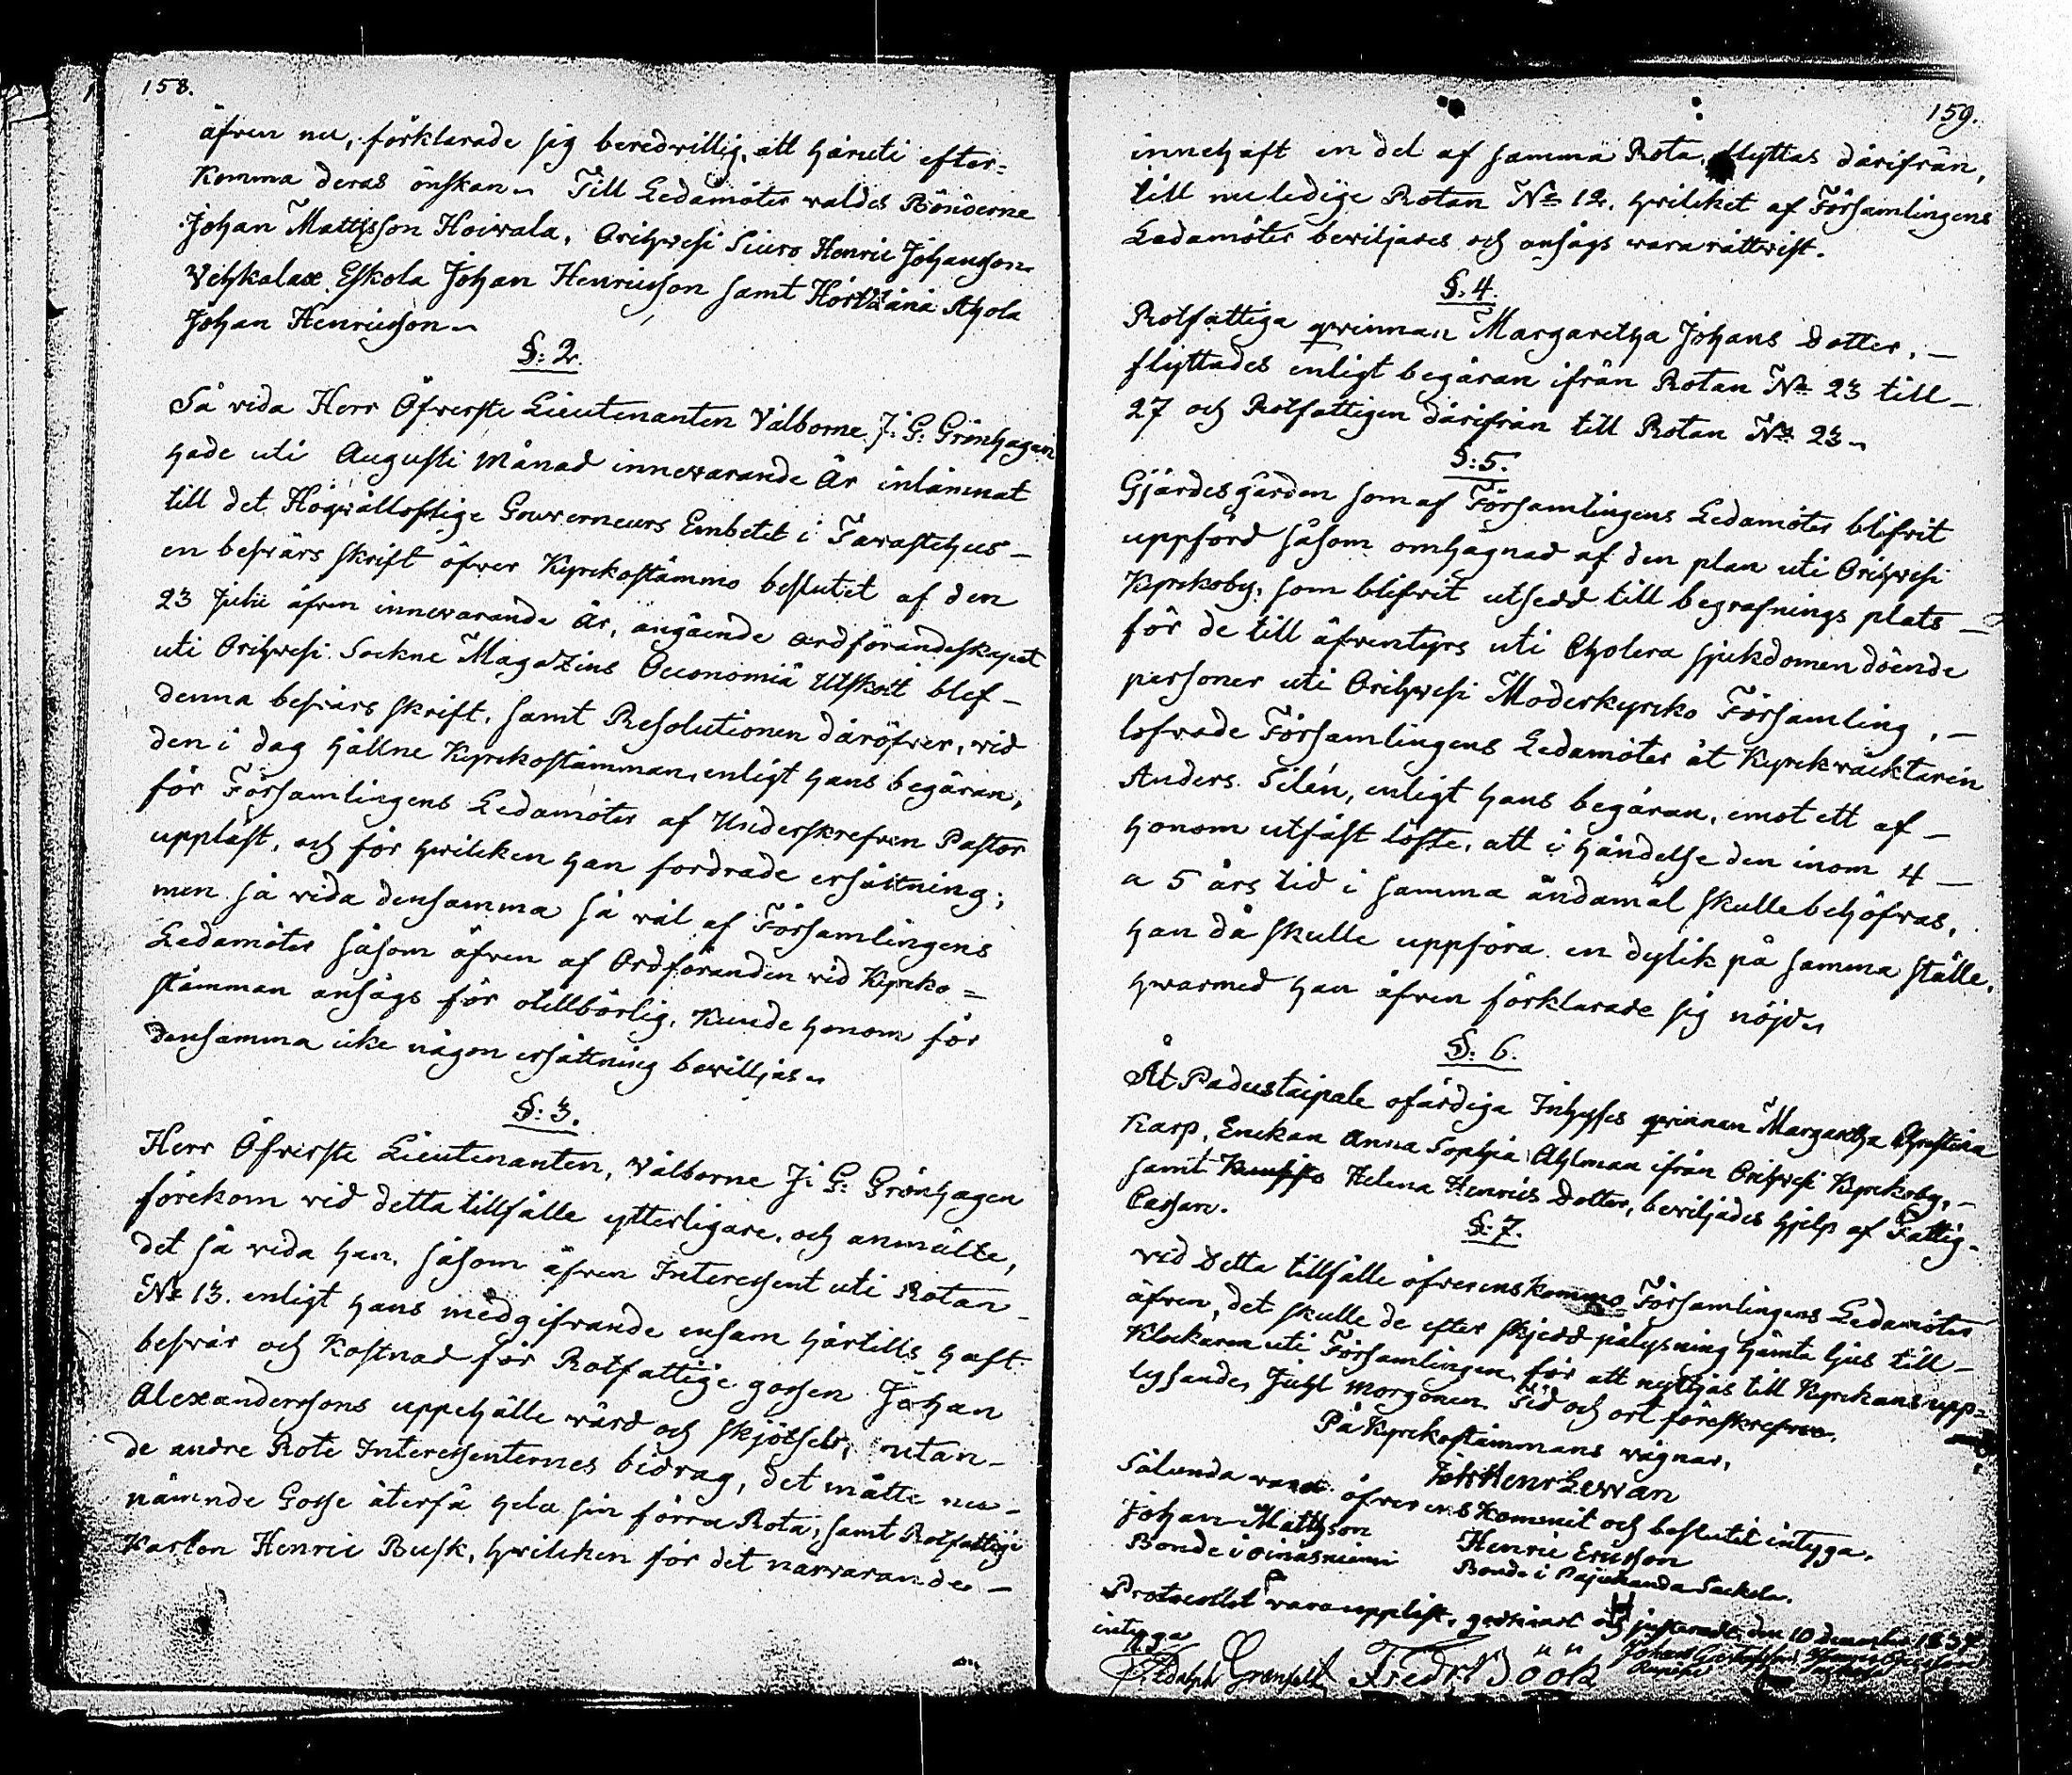 158.
äfven nu, förklarade sig beredvillig, att häruti efter=
komma deras önskan. Till Ledamöter valdes Bönderne
Johan Mattsson Hoivala, Orihvesi Siuro Henric Johansson
Vehkalax Eskola Johan Henricsson samt Ahola
Johan Henricsson.
§: 2.
Så vida Herr Öfverste Lieutenanten Välborne J: G: Grönhagen
hade uti Augusti Månad innevarande År inlämnat
till det Högvällofliga Gouverneurs Embetet i Tavastehus
en besvärs skrift öfver Kyrkostämmo beslutet af den
23 Julii äfven innevarande År, angående ordförandeskapet
uti Orihvesi Sockne Magazins Oeconomiä Utskott blef
denna besvärs skrift, samt Resolutionen däröfver, vid
den i dag hållne Kyrkostämman, enligt hans begäran,
för Församlingens Ledamöter af Underskrefven Pastor
uppläst, och för hvilken han fordrade ersättning;
men så vida densamma så väl af Församlingens
Ledamöter såsom äfven af Ordföranden vid Kyrko=
stämman ansågs för otillbörlig, kunde honom för
densamma icke någon ersättning bevilljas.
§: 3.
Herr Öfverste Lieutenanten, Välborne J: G: Grönhagen
förekom vid detta tillfälle ytterligare, och anmälte,
det så vida han, såsom äfven Interessent uti Rotan
No 13. enligt hans medgifvande ensam härtills haft
besvär och kostnad för Rotfattige gossen Johan
Alexanderssons uppehälle vård och skjötsel, utan
de andre Rote Interessenternes bidrag, det måtte nu-
nämnde Gosse återfå hela sin förra Rota, samt Rotfattige
Karlen Henric Busk, hvilcken för det närvarande
159.
innehaft en del af samma Rota, flyttas därifrån,
till nu ledige Rotan No 12. hvilcket af Församlingens
Ledamöter beviljades och ansågs vara rättvist.
§: 4.
Rotfattiga qvinnan Margaretha Johans Dotter,
flyttades enligt begäran ifrån Rotan No 23 till
27 och Rotfattigen därifrån till Rotan No 23.
§: 5.
Gjärdesgården som af Församlingens Ledamöter blifvit
uppförd såsom omhägnad af den plan uti Orihvesi
Kyrckoby, som blifvit utsedd till begrafnings plats
för de till äfventyrs uti Cholera sjukdomen döende
personer uti Orihvesi Moderkyrcko Församling,
lofvade Församlingens Ledamöter åt Kyrckväcktaren
Anders Silén, enligt hans begäran, emot ett af
honom utfäst löfte, att i händelse den inom 4
a 5 års tid i samma ändamål skulle behöfvas,
han då skulle uppföra en dylik på samma ställe,
hvarmed han äfven förklarade sig nöjd.
§: 6.
Åt Padustaipale ofärdiga Inhyses qvinnan Margaretha Christina
Karp, Enckan Anna Sophia Ahlman ifrån Orihvesi Kyrckoby,
samt Helena Henrics Dotter, beviljades hjelp af Fattig-
Cassan.
§: 7.
Vid Detta tillfälle öfverenskommo Församlingens Ledamöter
äfven, det skulle de efter skjedd pålysning hämta ljus till
Klockaren uti Församlingen, för att nyttjas till Kyrckans upp=
lysande, Juhl morgonen. Tid och ort föreskrefven.
På Kyrckostämmans vägnar,
Joh Henr Levvan
Sålunda vara öfverenskommit och beslutit intyga.
Johan Mattsson
Bonde i Oinasniemi
Henric Ericsson
Bonde i Pajukanda Sackola.
Protocollet vara uppläst, godkändt och justeradt, den 10 December 1837
intyga
Adolph Grönfeldt Fredr. Böök Johan Gustafsson